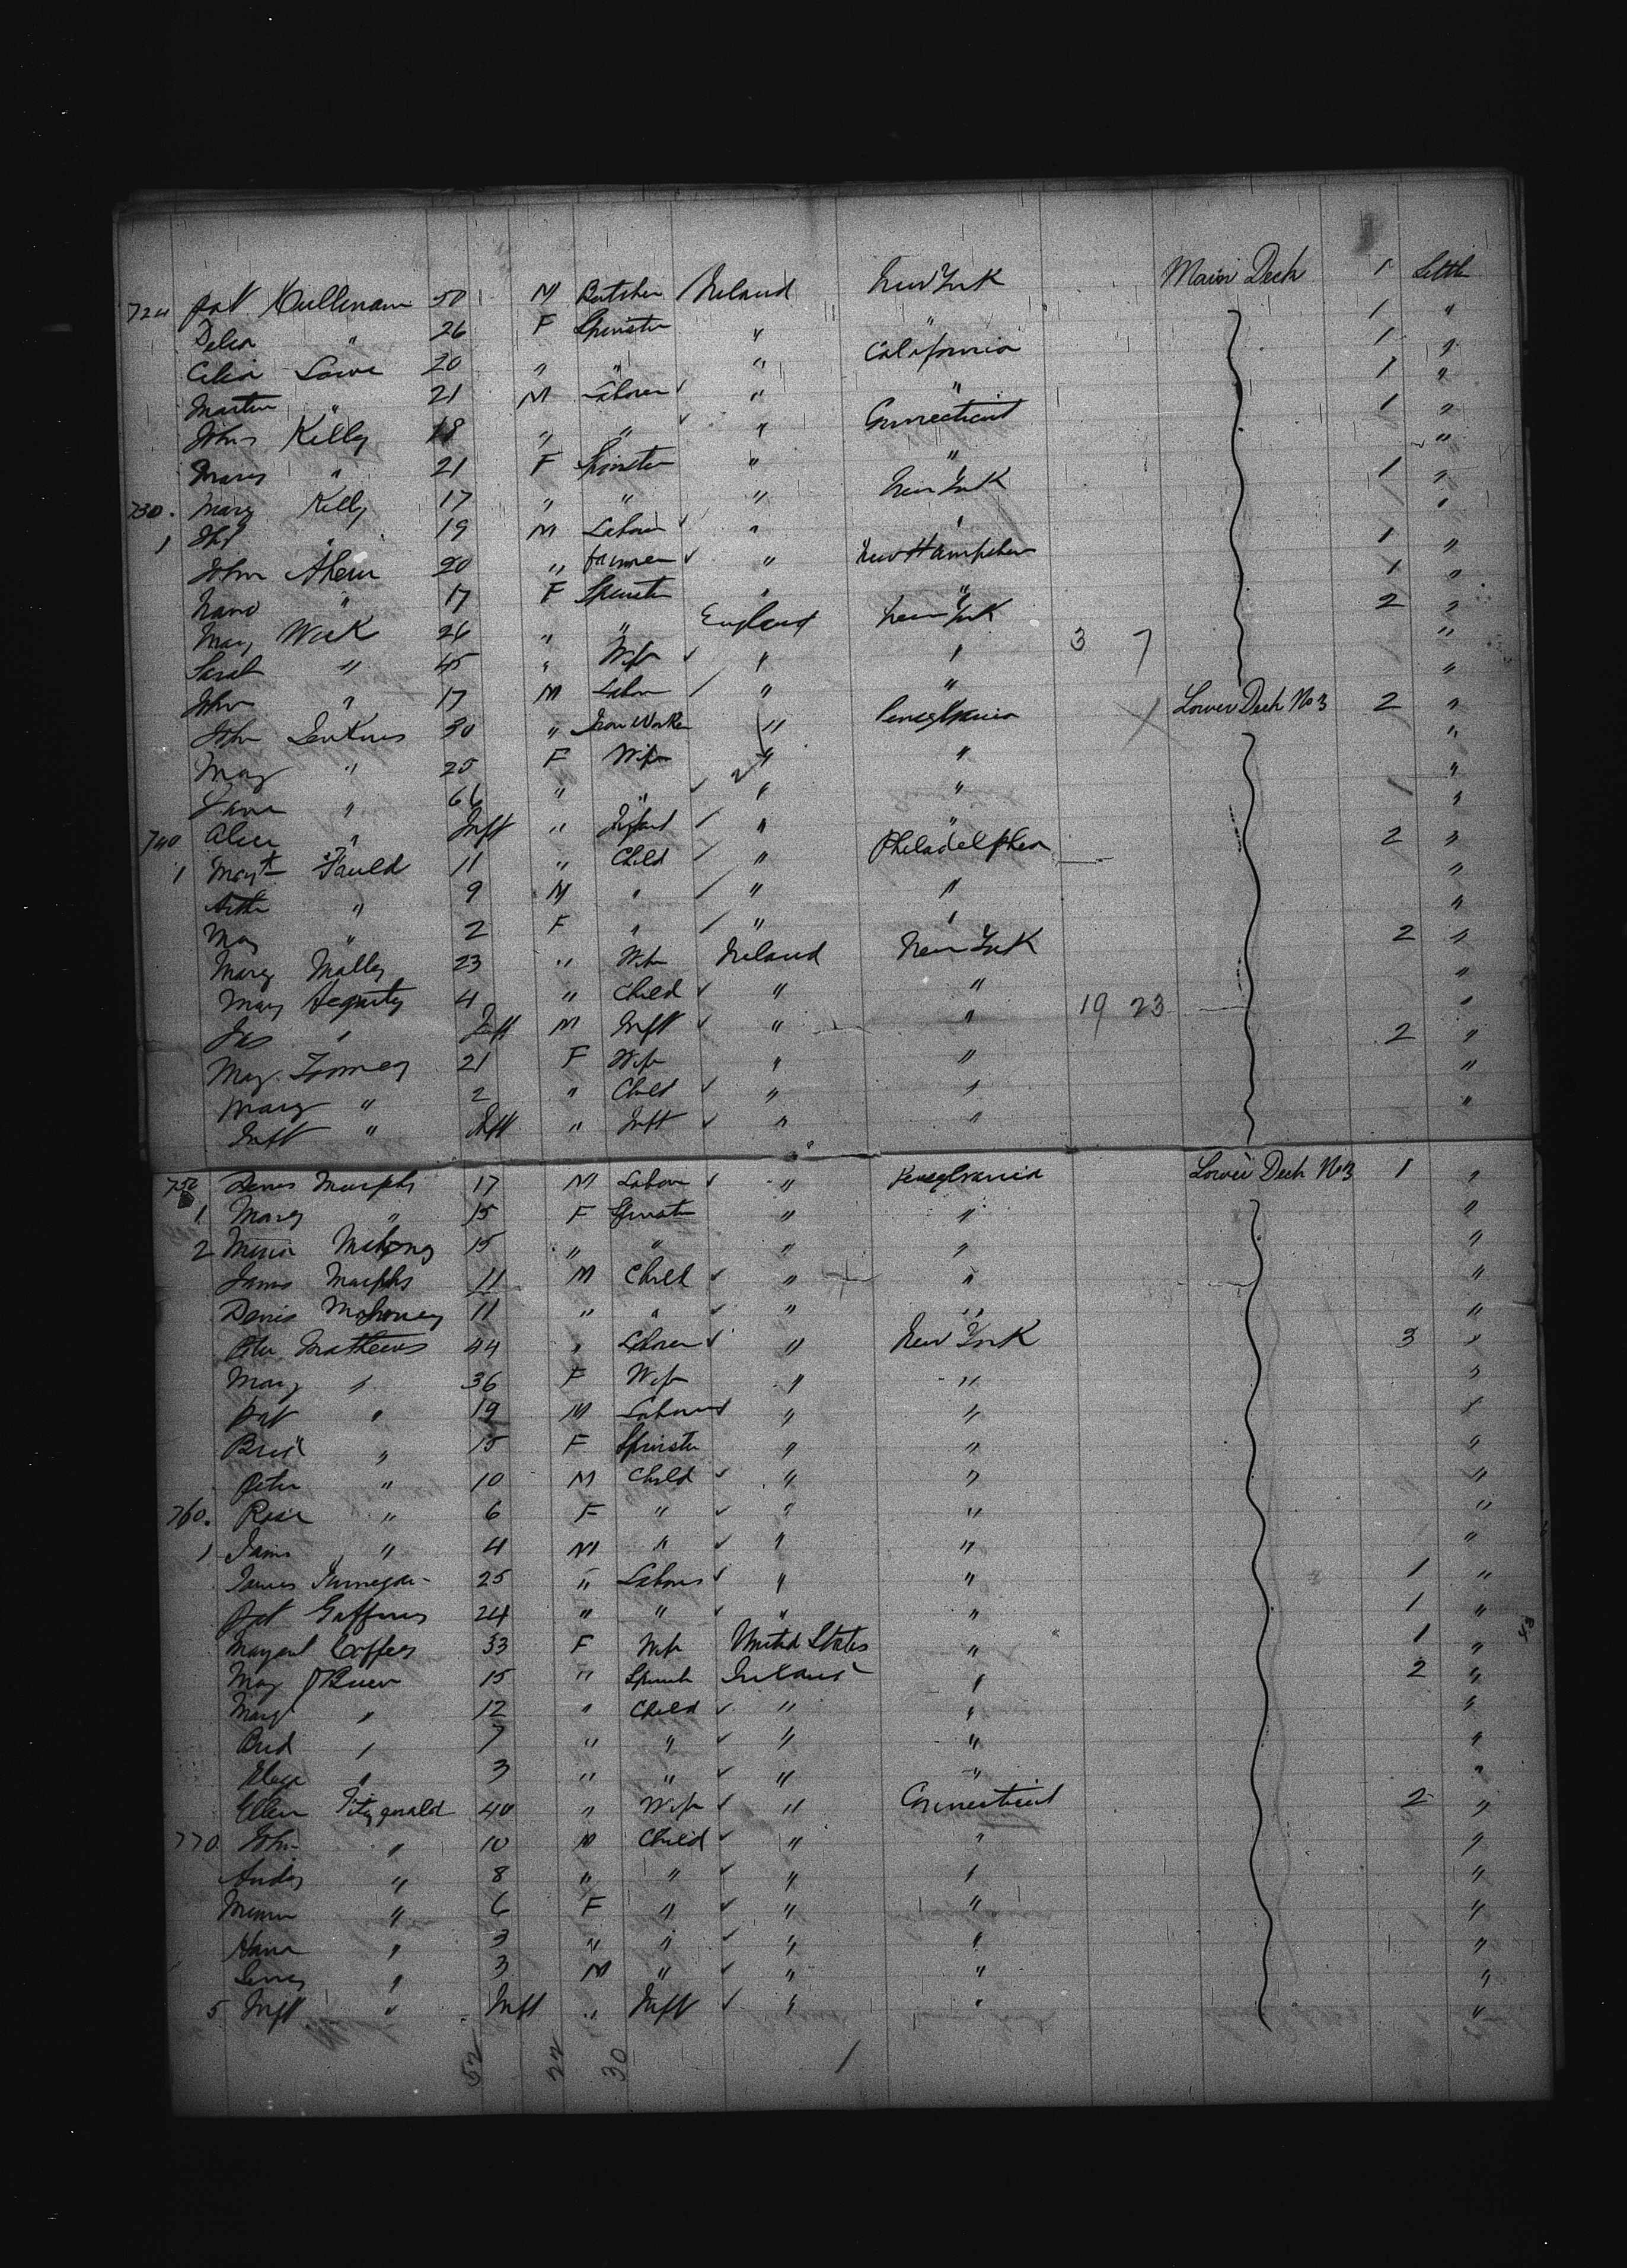 724 Pat Cullinane 50 M Butcher Ireland New York Main Deck 1 Settle
Delia " 26 F Spinster " " 1 "
Celia Lowe 20 " " " California 1 "
Martin " 21 M Laborer " " 1 "
John Kelly 18 " " " Connecticut 1 "
Mary " 21 F Spinster " " "
730. Mary Kelly 17 " " " New York 1 "
1 " 19 M Labour " " "
John Ahern 20 " Farmer " New Hampshire 1 "
" 17 F Spinster " " 1 "
Mary 26 " " England New York 2 "
Sarah " 45 " Wife " " 3 7 "
John " 17 M Labor " " "
John Jenkins 30 " Iron Worker " Pensylvania Lower Deck No 3 2 "
May " 25 F Wife " " "
" 66 " " " " "
740 Alice " Inft " Infant " " "
1 Margt Fauld 11 " Child " Philadelphia 2 "
" 9 M " " " "
May " 2 F " " " "
Mary Malley 23 " Wife Ireland New York 2 "
Mary Hegarty 4 " Child " " "
Jas " Inft M Inft " " 19 23 "
May Toomey 21 F Wife " " 2 "
Mary " 2 " Child " " "
Inft " Inft " Inft " " "
750 Denis Murphy 17 M Labour " Pensylvania Lower Deck No 3 1 "
1 Mary " 15 F Spinster " " "
2 Mahony 15 " " " " "
James Murphy 11 M Child " " "
Denis Mahoney 11 " " " " "
Peter Mathews 44 " Laborer " New York 3 "
Mary " 36 F Wife " " "
Pat " 19 M Labourer " " "
Brid " 15 F Spinster " " "
Peter " 10 M Child " " "
760. Rose " 6 F " " " "
1 James " 4 M " " " "
James 25 " Laborer " " 1 "
Pat Gaffney 24 " " " " 1 "
33 F Wife United States " 1 "
May O'Brien 15 " Ireland " 2 "
Margt " 12 " Child " " "
Brid " 7 " " " " "
" 3 " " " " "
Ellen Fitzgerald 40 " Wife " Connecticut 2 "
770 John " 10 M Child " " "
Andy " 8 " " " " "
" 6 F " " " "
Hana " 3 " " " " "
" 3 M " " " "
5 Inft " Inft " Inft " " "
52 22 30